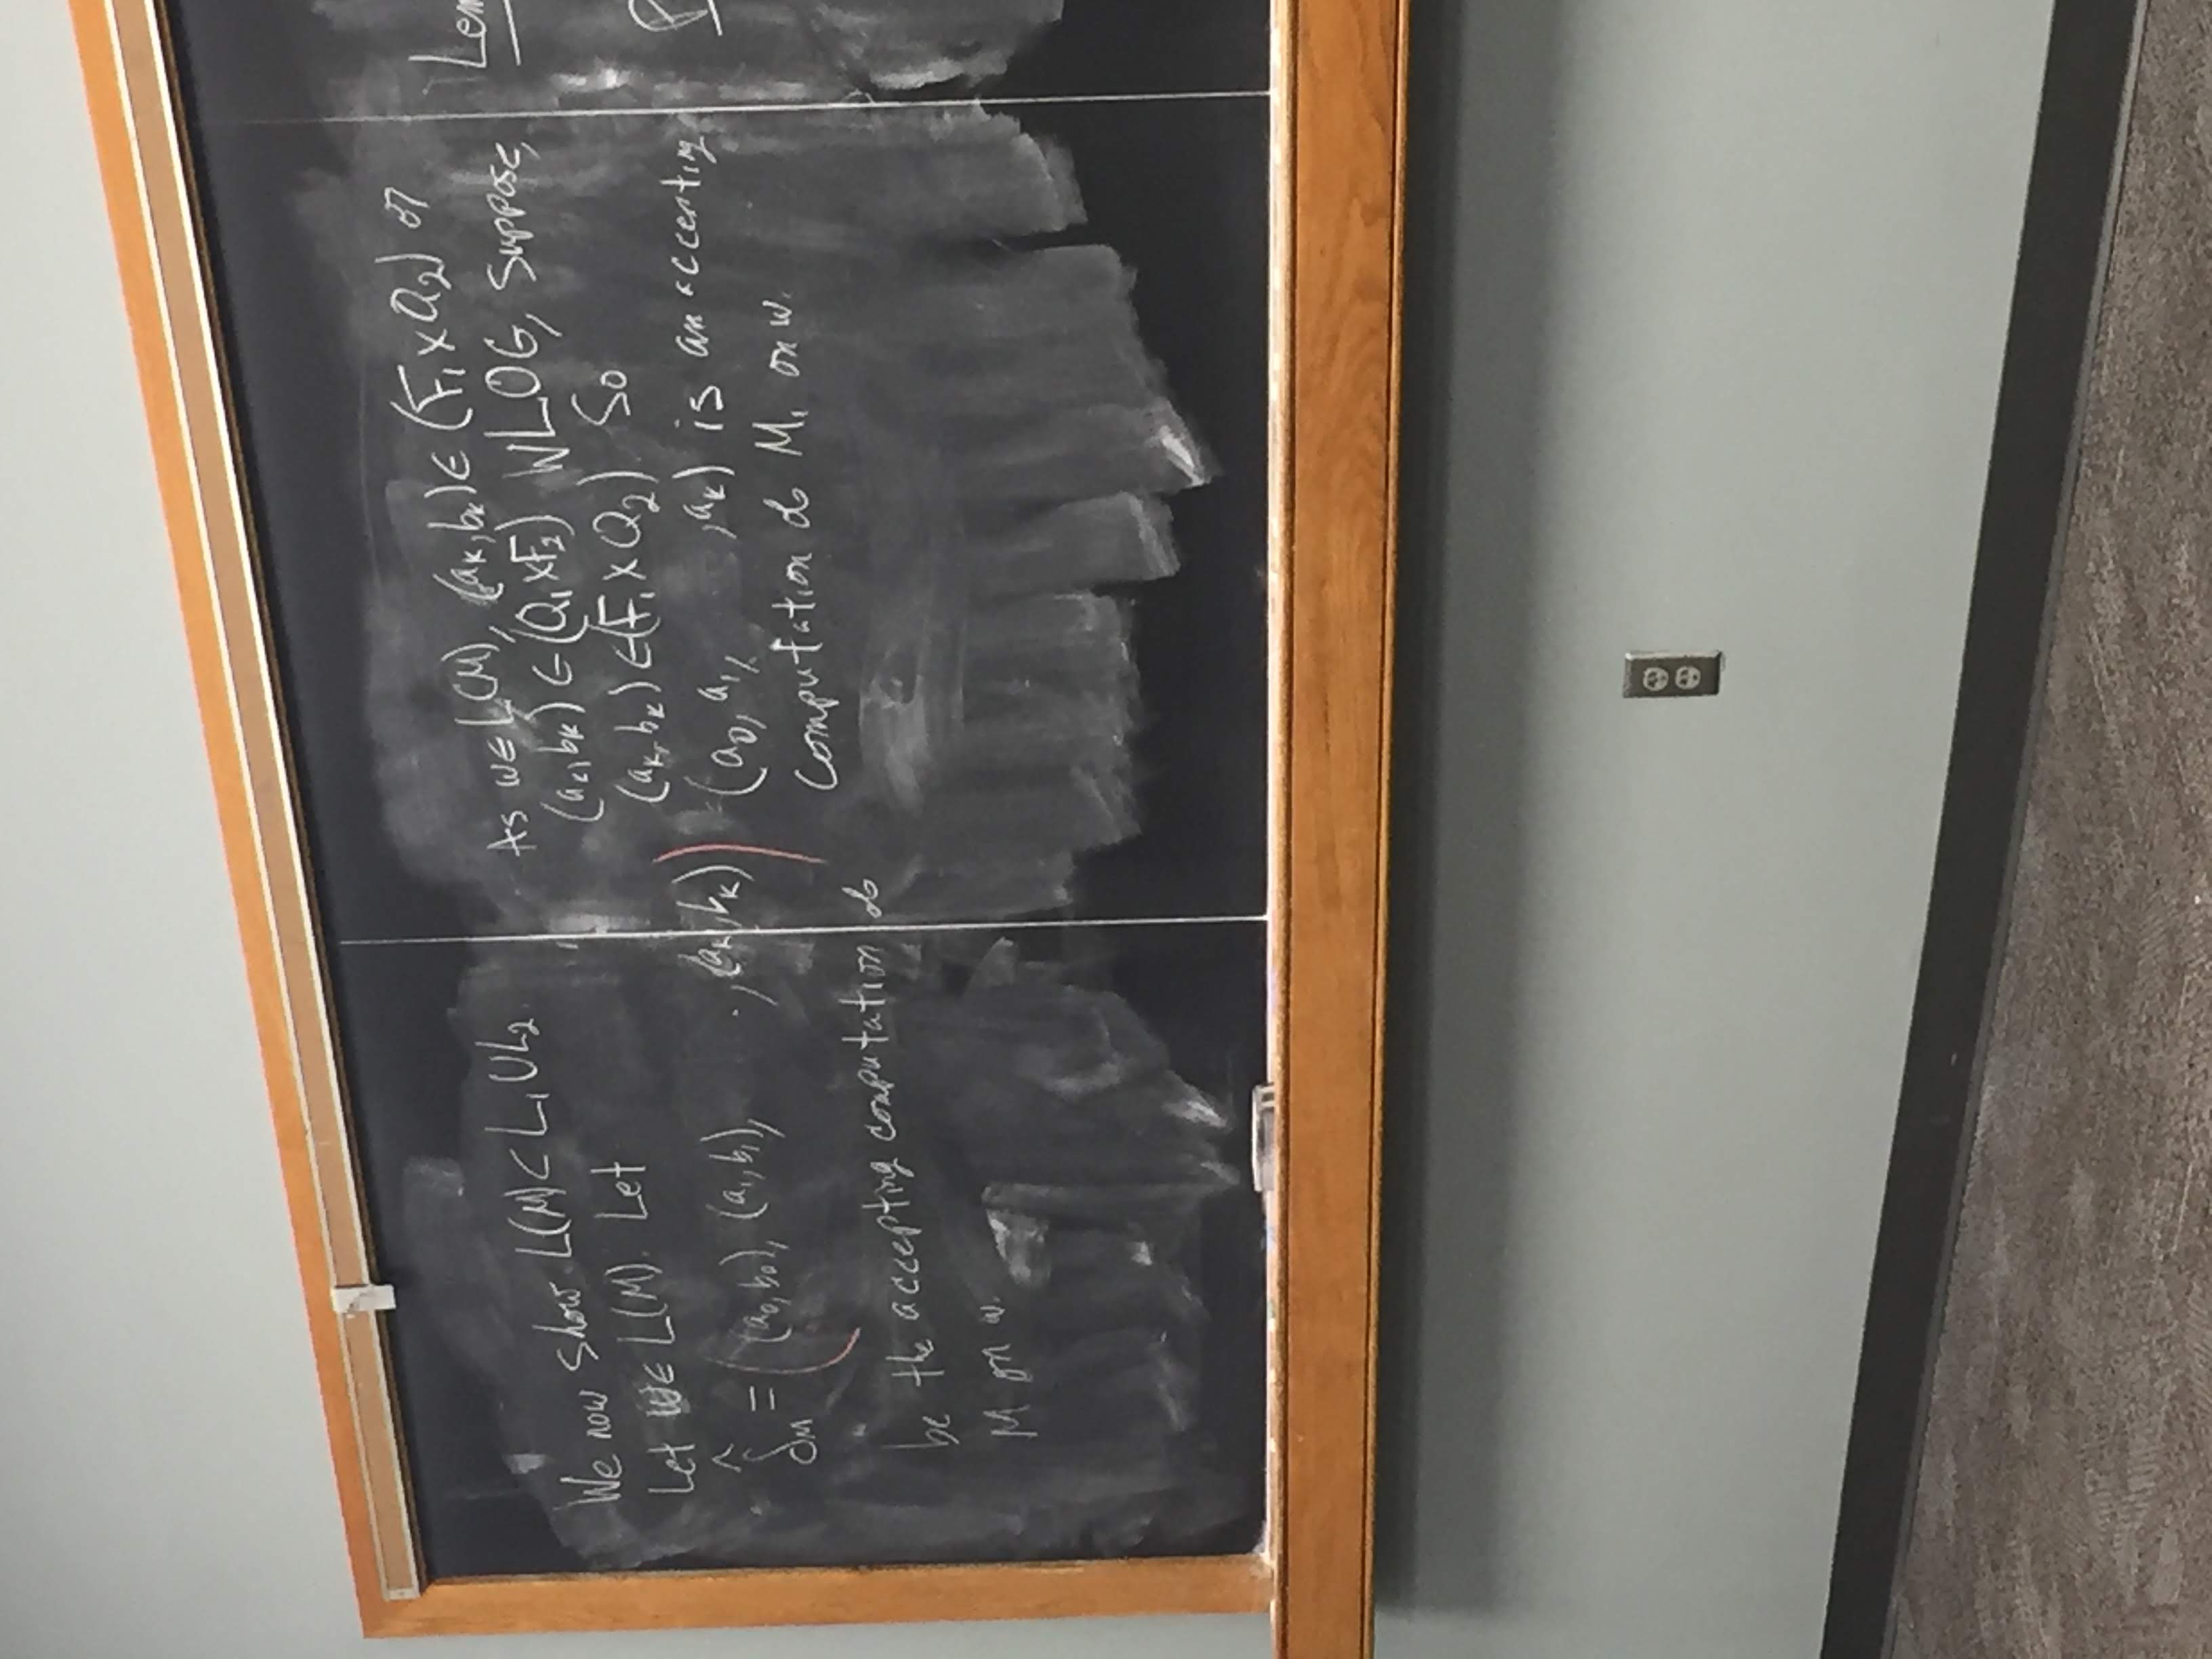 We now show L(M) ⊂ L₁ ∪ L₂
Let w ∈ L(M). Let
δ̂_M = ((a₀,b₀), (a₁,b₁), ., (aₖ,bₖ))
be the accepting computation of
M on w.
As w ∈ L(M), (aₖ,bₖ) ∈ (F₁ × Q₂) or
(aₖ,bₖ) ∈ (Q₁ × F₂) WLOG, Suppose,
(aₖ,bₖ) ∈ (F₁ × Q₂). So
(a₀, a₁, ,aₖ) is an accepting
Computation of M₁ on w.
Lem
P